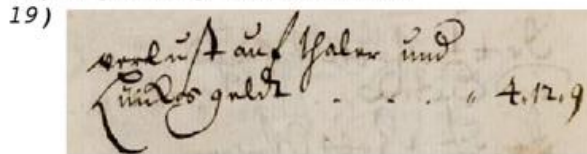 19)
verlust auf thaler und
geldt . . . . " 4.12.9